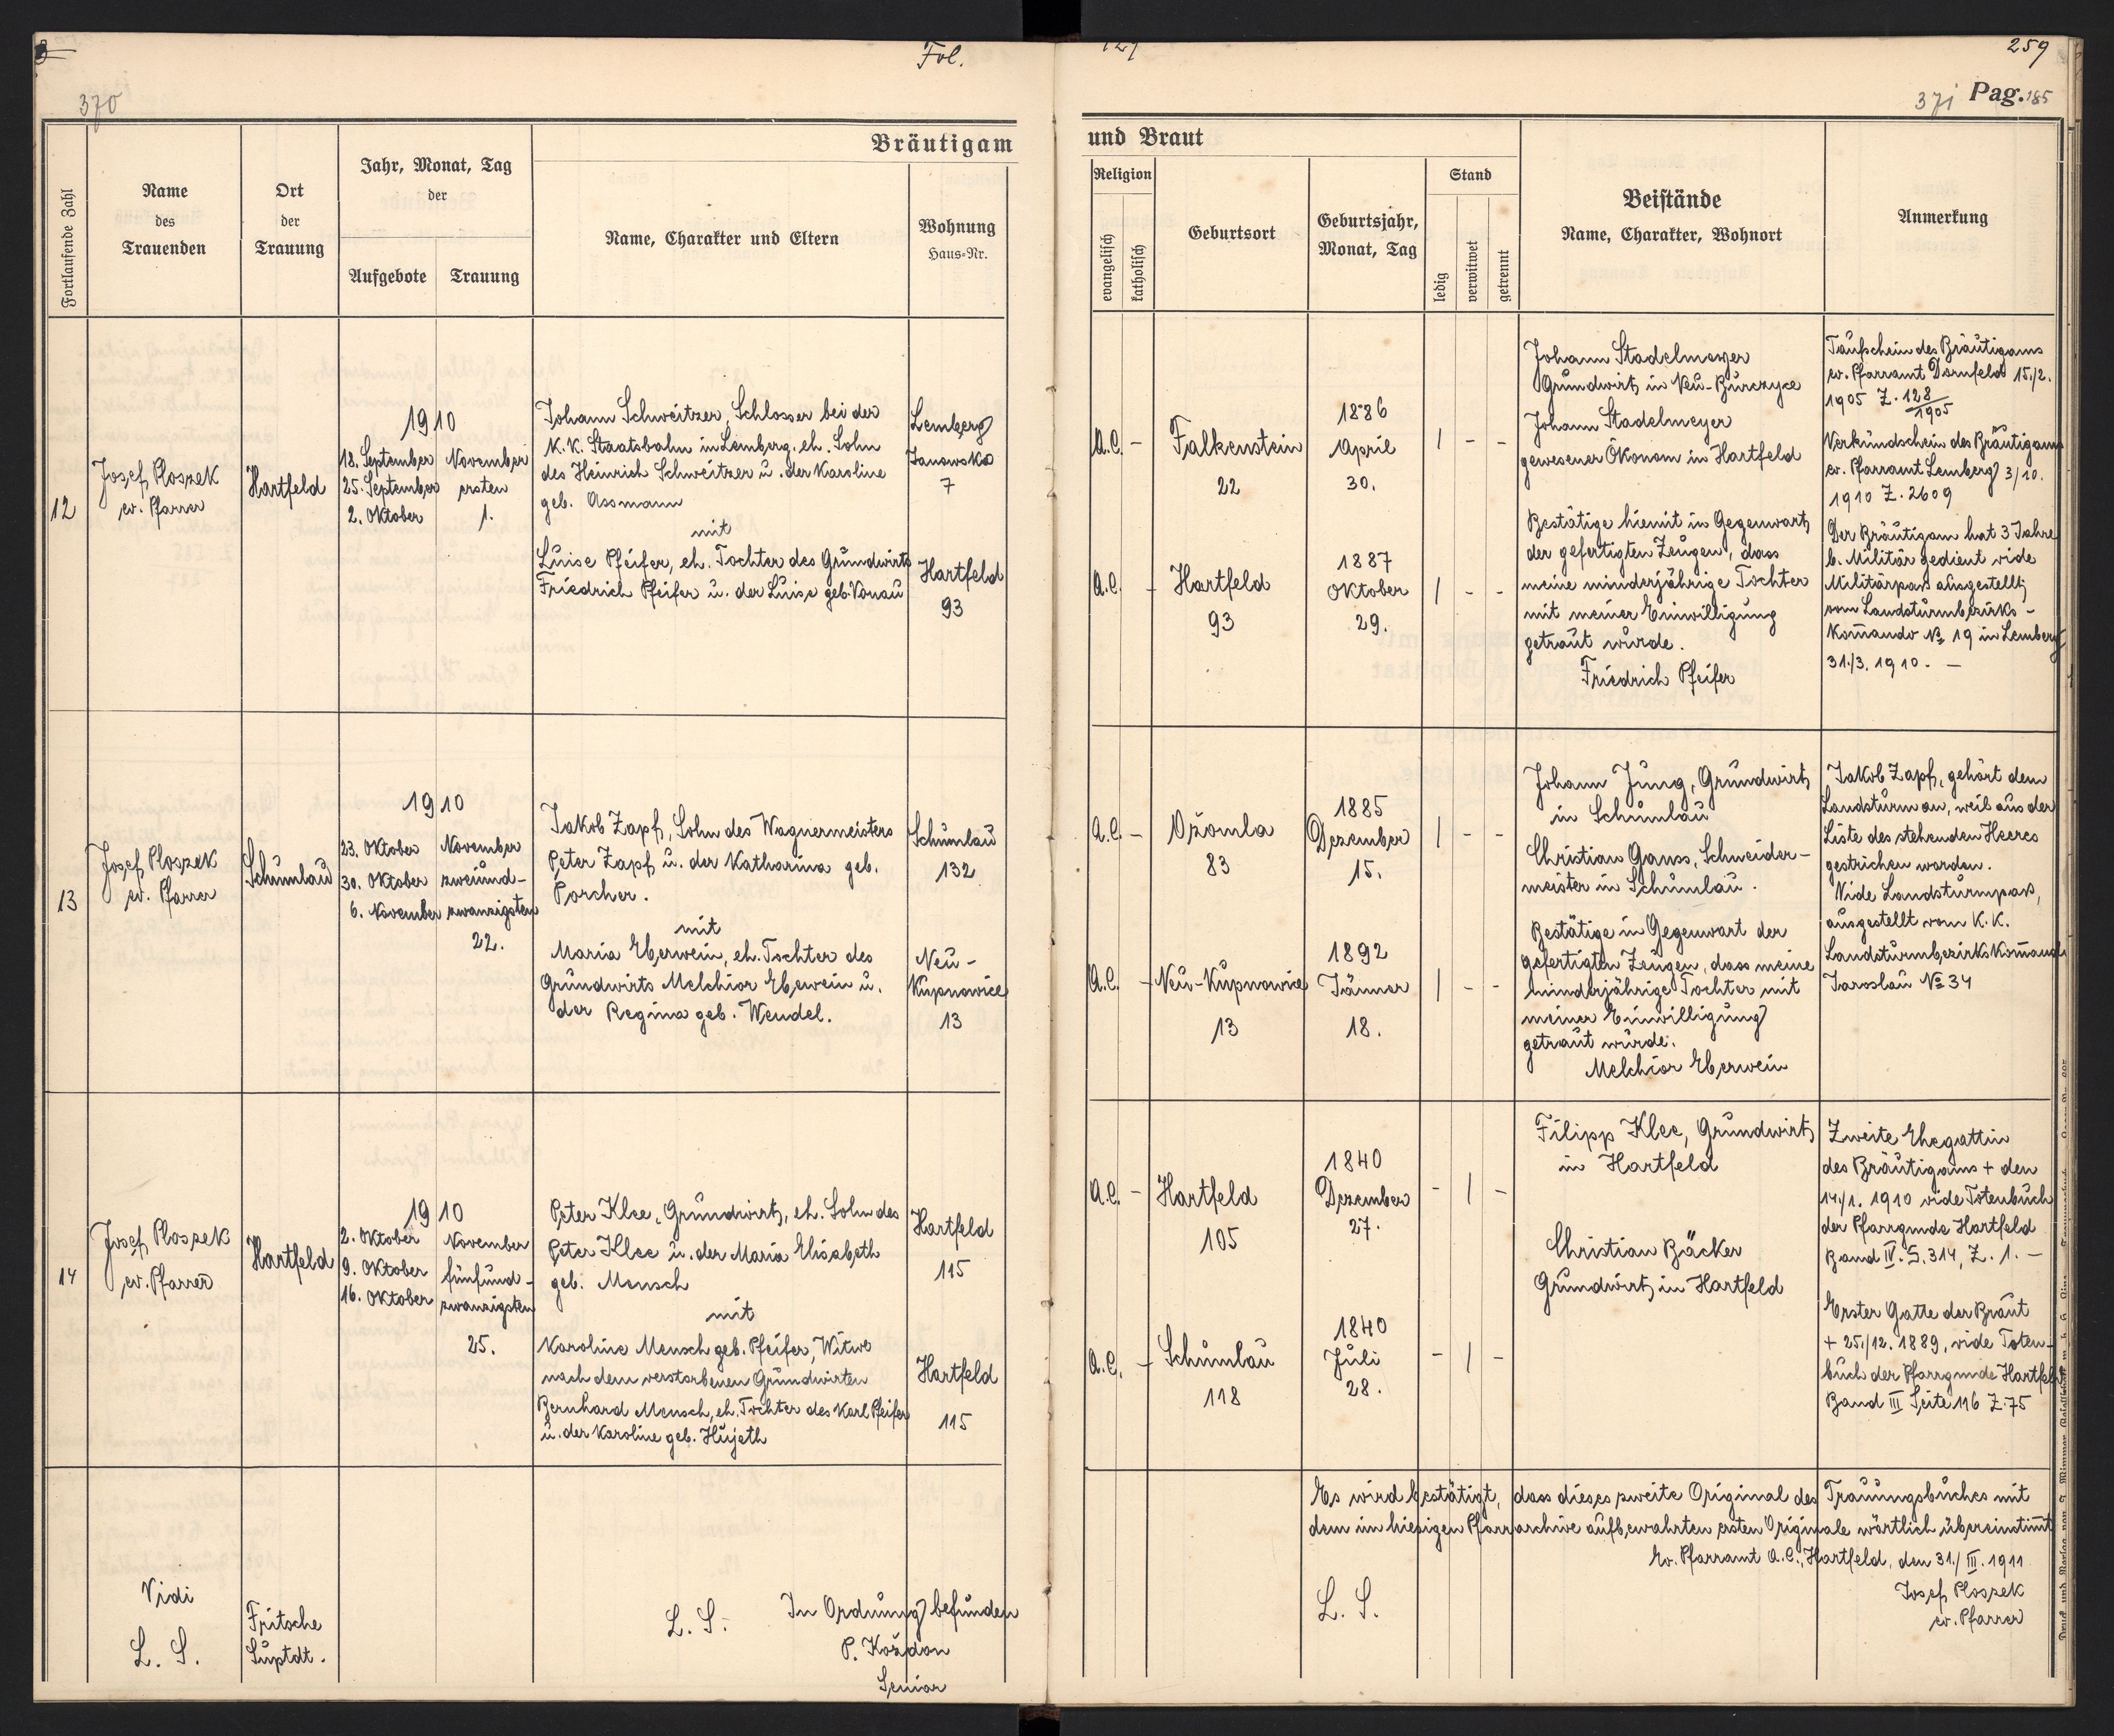 Fol.
259
370
371 Pag. 185
Bräutigam
und Braut
Fortlaufende Zahl
Name
des
Trauenden
Ort
der
Trauung
Jahr, Monat, Tag
der
Aufgebote
Trauung
Name, Charakter und Eltern
Wohnung
Haus-Nr.
Religion
evangelisch
katholisch
Geburtsort
Geburtsjahr,
Monat, Tag
Stand
ledig
verwitwet
getrennt
Beistände
Name, Charakter, Wohnort
Anmerkung
12
Josef Ploszek
ev. Pfarrer
Hartfeld
1910
18. September
25. September
2. Oktober
November
ersten
1.
Johann Schweitzer, Schlosser bei der
K.K. Staatsbahn in Lemberg, eh. Sohn
des Heinrich Schweitzer u. der Karoline
geb. Assmann
mit
Luise Pfeifer, eh. Tochter des Grundwirts
Friedrich Pfeifer u. der Luise geb. Konau
Lemberg
Janowska
7
Hartfeld
93
A.C. -
Falkenstein
22
1886
April
30.
| - -
A.C. -
Hartfeld
93
1887
Oktober
29.
| - -
Johann Stadelmayer
Grundwirt in Neu-Burczyce
Johann Stadelmeyer
gewesener Ökonom in Hartfeld
Bestätige hiemit in Gegenwart
der gefertigten Zeugen, dass
meine minderjährige Tochter
mit meiner Einwilligung
getraut wurde.
Friedrich Pfeifer
Taufschein des Bräutigams
ev. Pfarramt Dornfeld 15./2.
1905 Z. 128/1905
Verkündschein des Bräutigams
ev. Pfarramt Lemberg 3/10.
1910 Z. 2609
Der Bräutigam hat 3 Jahre
b. Militär gedient vide
Militärpass ausgestellt
vom Landsturmbezirks-
Kom̅ando № 19 in Lemberg
31./3. 1910. —
13
Josef Ploszek
ev. Pfarrer
Schumlau
1910
23. Oktober
30. Oktober
6. November
November
zweiund-
zwanzigsten
22.
Jakob Zapf, Sohn des Wagnermeisters
Peter Zapf u. der Katharina geb.
Porcher.
mit
Maria Eberwein, eh. Tochter des
Grundwirts Melchior Eberwein u.
der Regina geb. Wendel.
Schumlau
132
Neu-
Kupnowice
13
A.C. -
Ožomla
83
1885
Dezember
15.
| - -
A.C. -
Neu-Kupnowice
13
1892
Jänner
18.
| - -
Johann Jung, Grundwirt
in Schumlau
Christian Gauss, Schneider-
meister in Schumlau.
Bestätige in Gegenwart der
gefertigten Zeugen, dass meine
minderjährige Tochter mit
meiner Einwilligung
getraut wurde.
Melchior Eberwein
Jakob Zapf, gehört dem
Landsturm an, weil aus der
Liste des stehenden Heeres
gestrichen worden.
Vide Landsturmpass,
ausgestellt vom K.K.
Landsturmbezirkskom̅ando
Jaroslau № 34
14
Josef Ploszek
ev. Pfarrer
Hartfeld
1910
2. Oktober
9. Oktober
16. Oktober
November
fünfund-
zwanzigsten
25.
Peter Klee, Grundwirt, eh. Sohn des
Peter Klee u. der Maria Elisabeth
geb. Mensch
mit
Karoline Mensch geb. Pfeifer, Witwe
nach dem verstorbenen Grundwirten
Bernhard Mensch, eh. Tochter des Karl Pfeifer
u. der Karoline geb. Hujeth
Hartfeld
115
Hartfeld
115
A.C. -
Hartfeld
105
1840
Dezember
27.
- | -
A.C. -
Schumlau
118
1840
Juli
28.
- | -
Filipp Klee, Grundwirt
in Hartfeld
Christian Bäcker
Grundwirt, in Hartfeld
Zweite Ehegattin
des Bräutigams + den
14./1. 1910 vide Totenbuch
der Pfarrgmde Hartfeld
Band IV. S. 314, Z. 1. —
Erster Gatte der Braut
+ 25./12. 1889, vide Toten-
buch der Pfarrgmde Hartfeld
Band III Seite 116 Z. 75
Es wird bestätigt, dass dieses zweite Original des Trauungsbuches mit
dem im hiesigen Pfarrarchive aufbewahrten ersten Originale wörtlich übereinstim̅t
Ev. Pfarramt A.C., Hartfeld, den 31./III. 1911
L. S.
Josef Ploszek
ev. Pfarrer
Vidi
L. S.
Fritsche
Suptdt.
L. S.
In Ordnung befunden
P. Koždon
Senior